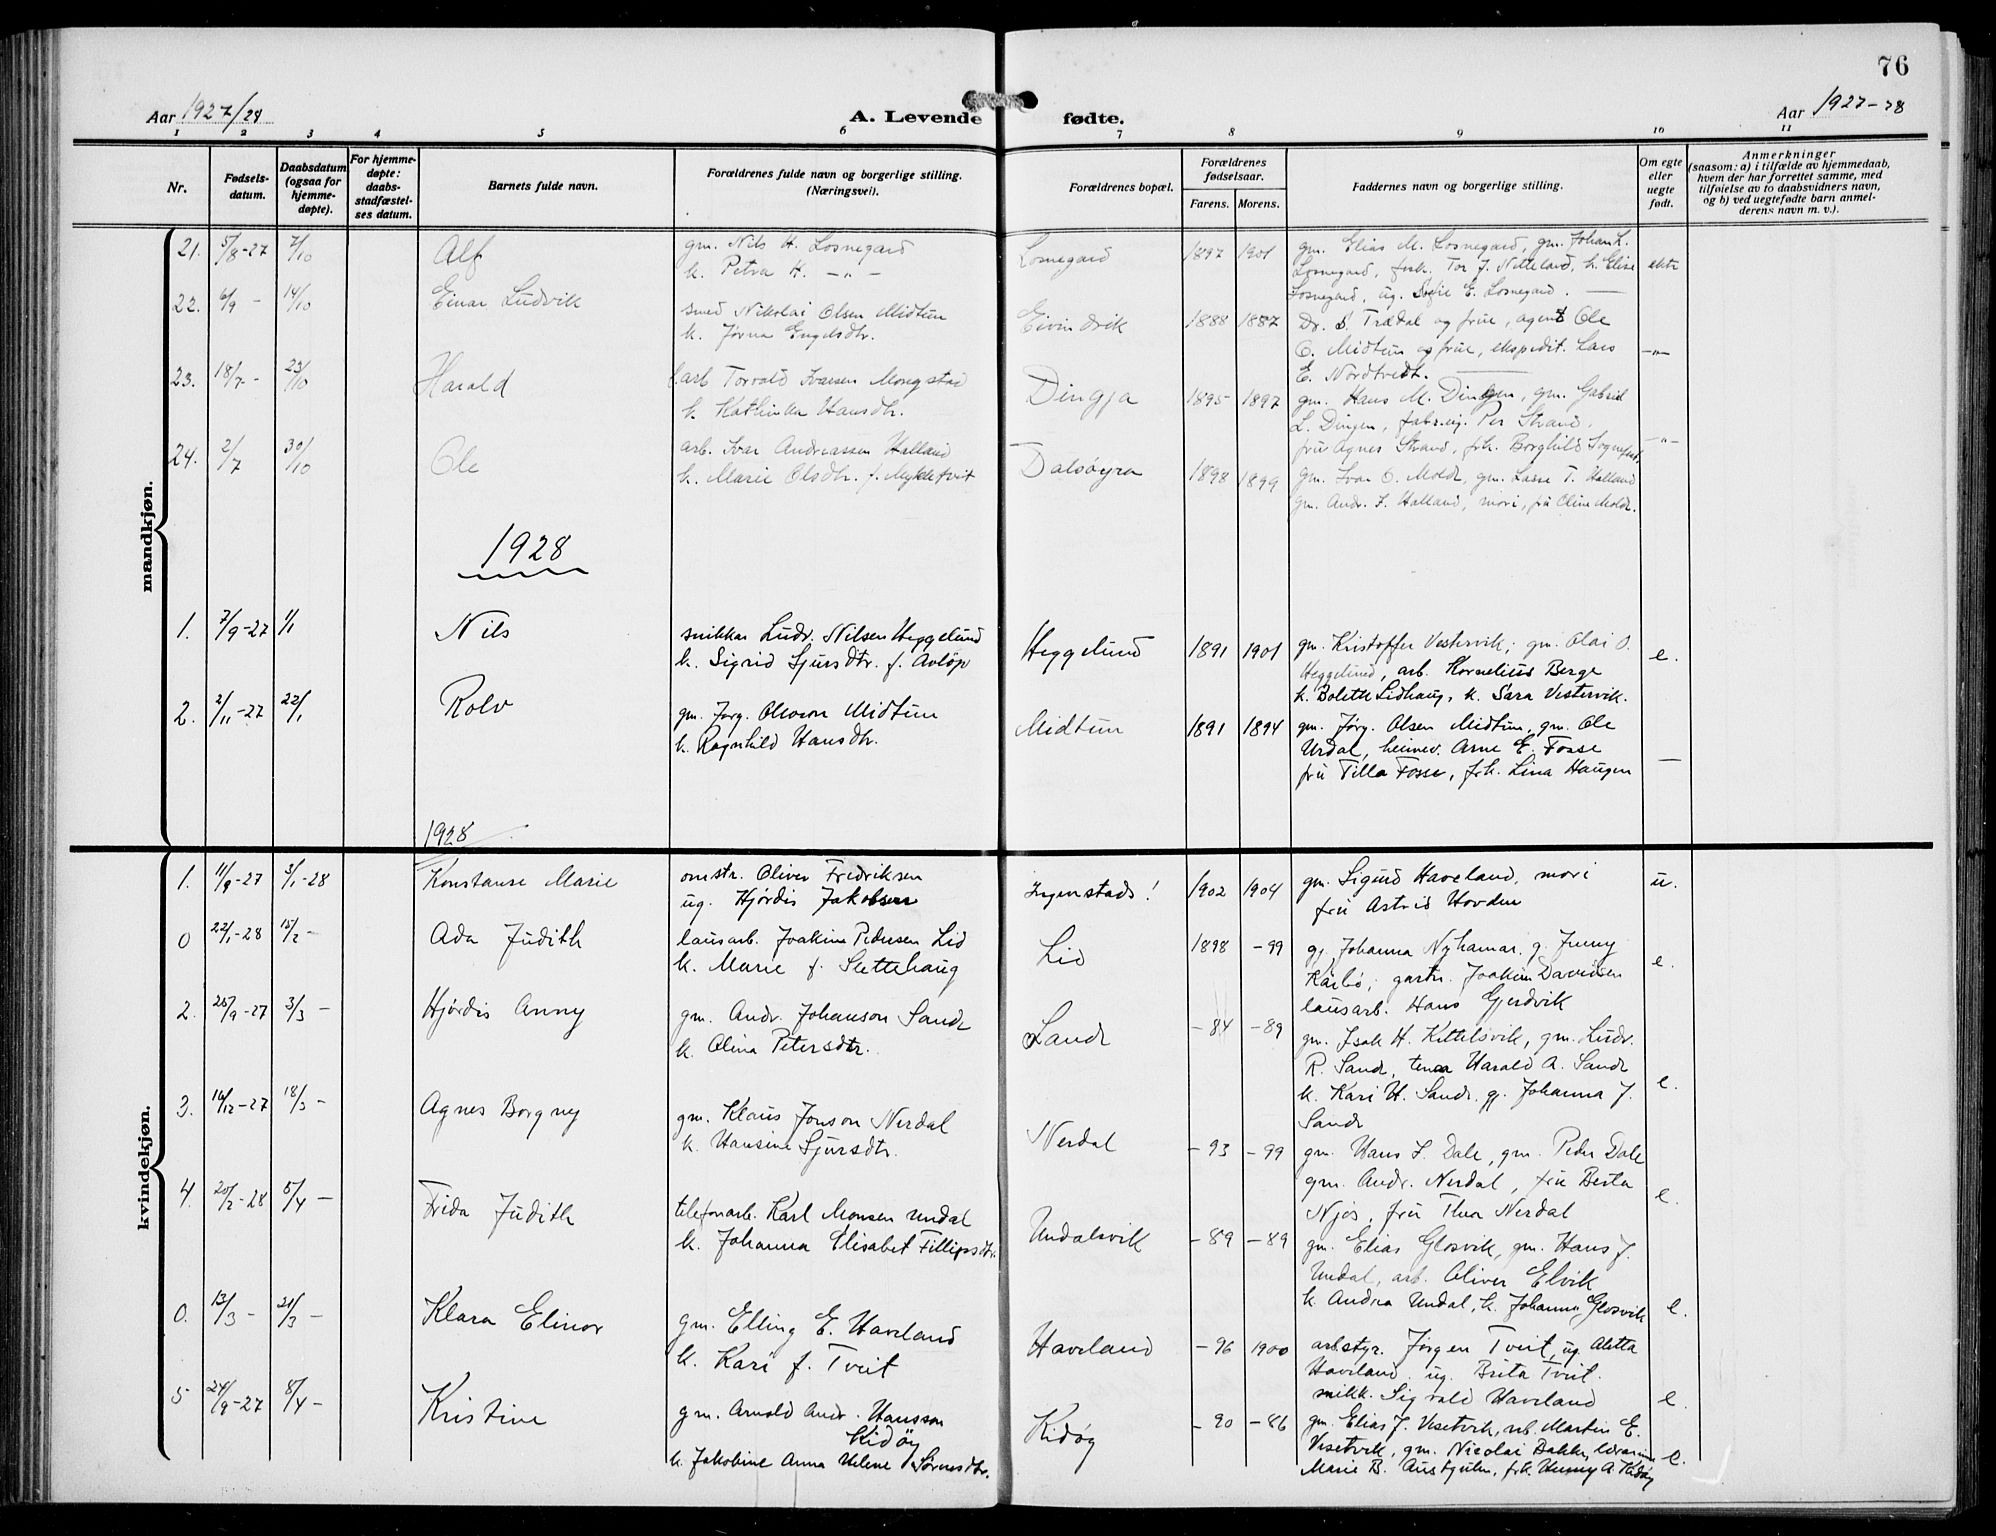 76
Aar 1927/28
A. Levende fødte.
Aar 1927-28
1 2 3 4 5 6 7 8 9 10 11
Nr.
Fødsels-
datum.
Daabsdatum
(ogsaa for
hjemme-
døpte).
For hjemme-
døpte:
daabs-
stadfæstel-
ses datum.
Barnets fulde navn.
Forældrenes fulde navn og borgerlige stilling.
(Næringsvei).
Forældrenes bopæl.
Forældrenes
fødselsaar.
Farens. Morens.
Faddernes navn og borgerlige stilling.
Om egte
eller
uegte
født.
Anmerkninger
(saasom: a) i tilfælde av hjemmedaab,
hvem der har forrettet samme, med
tilføielse av to daabsvidners navn,
og b) ved uegtefødte barn anmel-
derens navn m. v.).
mandkjøn.
21. 5/8-27 7/10 Alf
gm. Nils H. Losnegard
k. Petra H. -"-
Losnegard 1897 1901
gm. Elias M. Losnegard, gm. Johan L.
Losnegard, fisk. Tor J. Nitteland, k. Elise
Losnegard, ug. Sofie E. Losnegard.
ekte
22. 6/9 - 14/10 Einar Ludvik
smed Nikolai Olsen Midtun
k. Jørna Engelsdtr.
Eivindvik 1888 1887
Dr. S. Trædal og frue, agent Ole
O. Midtun og frue, ekspedit. Lars
E. Nordtvedt.
-"-
23. 18/7 - 23/10 Harald
f.arb Torvald Ivarsen Mongstad
k. Kathinka Hansdtr.
Dingja 1895 1897
gm. Hans M. Dingen, gm. Gabriel
L. Dingen, fabr.eig. Per Strand,
fru Agnes Strand, frk. Borghild Sognefest.
-"-
24. 2/7 30/10 Ole
arb. Ivar Andreassen Halland
k. Marie Olsdtr. f. Mykletvit
Dalsøyra 1898 1899
gm. Ivar O. Molde, gm. Lasse T. Halland
gm. Andr. I. Halland, mori, fru Oline Molde.
1928
1. 7/9-27 1/1 Nils
snikkar Ludv. Nilsen Heggelund
k. Sigrid Sjursdtr. f. Avløp
Heggelund 1891 1901
gm. Kristoffer Vestervik; gm. Olai O.
Heggelund, arb. Kornelius Berge
k. Bolette Lidhaug, k. Sara Vestervik.
e.
2. 2/11-27 22/1 Rolv
gm. Jørg. Olsson Midtun
k. Ragnhild Hansdtr.
Midtun 1891 1894
gm. Jørg. Olsen Midtun, gm. Ole
Urdal, heimev. Arne E. Fosse
fru Tilla Fosse, frk. Lina Haugen
—
kvindekjøn.
1928
1. 11/9-27 3/1-28 Konstanse Marie
omstr. Oliver Fredriksen
ug. Hjørdis Jakobsen
Ingenstads! 1902 1904
gm. Sigurd Haveland, mori
fru Astrid Hovden
u.
0 22/1-28 15/2 - Ada Judith
lausarb. Joakim Pedersen Lid
k. Marie f. Slettehaug
Lid 1898 -99
gj. Johanna Nyhamar. g. Jenny
Kårbø; gartn. Joakim Davidsen
lausarb. Hans Gjerdvik
e.
2. 25/9-27 3/3 - Hjørdis Anny
gm. Andr. Johanson Sande
k. Olina Petersdtr.
Sande -84 -89
gm. Isak H. Kittelsvik, gm. Ludv.
R. Sande, Harald A. Sande
k. Kari H. Sande, gj. Johanna J.
Sande
e.
3. 16/12-27 18/3 - Agnes Borgny
gm. Klaus Jonson Nerdal
k. Hansine Sjursdtr.
Nerdal -93 -99
gm. Hans L. Dale, gm. Peder Dale
gm. Andr. Nerdal, fru Berta
Njøs, fru Thea Nerdal
e.
4. 20/2-28 5/4 - Frida Judith
telefonarb. Karl Monsen Undal
k. Johanna Elisabet Fillipsdtr.
Undalsvik -89 -89
gm. Elias Glosvik, gm. Hans J.
Undal, arb. Oliver Elvik
k. Andrea Undal, k. Johanna Glosvik
e.
0. 13/3 - 21/3 - Klara Elinor
gm. Elling E. Haveland
k. Kari f. Tveit
Haveland -96 1900
arbstyr. Jørgen Tveit, ug. Aletta
Haveland, ug. Brita Tveit.
snikk. Sigvald Haveland
e.
5 24/9-27 8/4 - Kristine
gm. Arnold Andr. Hansson
Kidøy
k. Jakobine Anna Helene Sørnesdtr.
Kidøy -90 -86
gm. Elias J. Visetvik, arb. Martin E.
Visetvik, gm. Nicolai Bakke, lærarinne
Marie B. Austgulen, frk. Henny A. Kidøy
e.